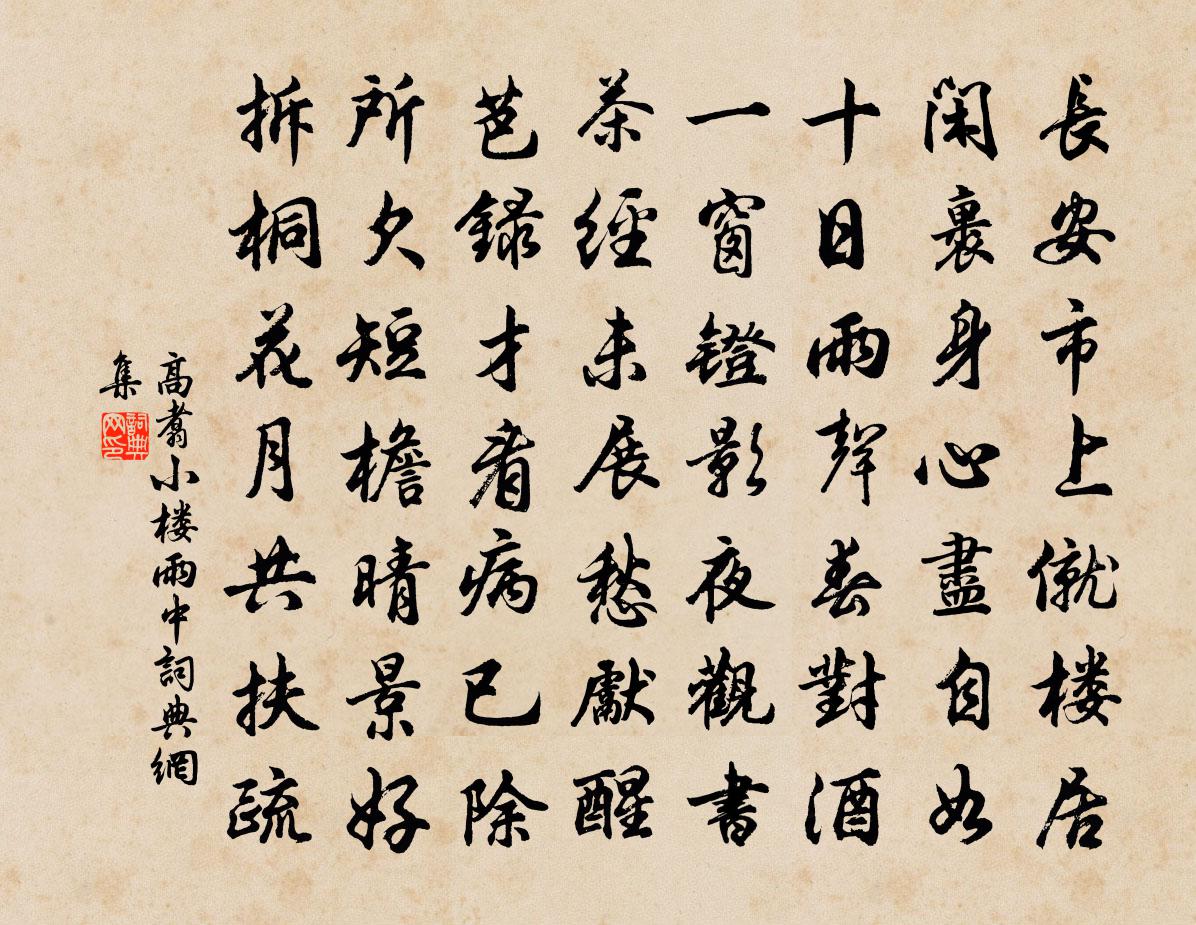 長安市上僦楼居
閑裏身心盡自如
十日雨聲春對酒
一窗鐙影夜觀書
茶經未展愁獻醒
芭録才看病已除
所欠短檐晴景好
拆桐花月共扶疏
高翥小楼雨中詞典網
集
詞典
网印